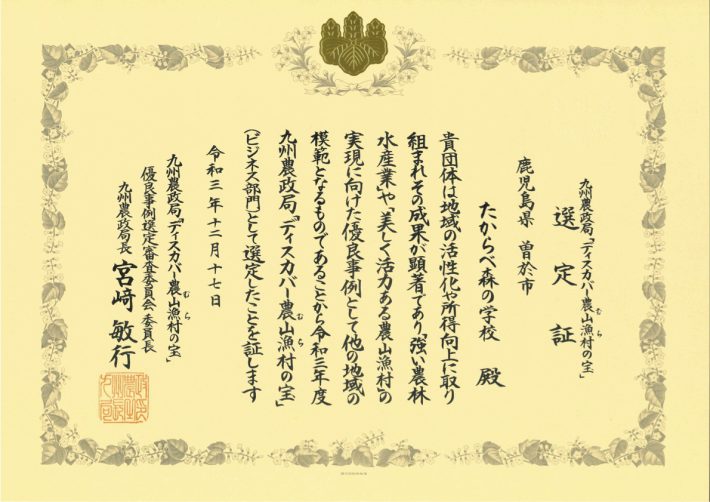 九州農政局「ディスカバー農山漁村の宝」
むら
選定証
鹿児島県 曽於市
たからべ森の学校 殿
貴団体は地域の活性化や所得向上に取り
組まれその成果が顕著であり「強い農林
水産業」や「美しく活力ある農山漁村」の
実現に向けた優良事例として他の地域の
模範となるものであることから令和三年度
九州農政局「ディスカバー農山漁村の宝」
むら
(ビジネス部門)として選定したことを証します
令和三年十二月十七日
九州農政局「ディスカバー農山漁村の宝」
むら
優良事例選定審査委員会委員長
九州農政局長 宮﨑敏行